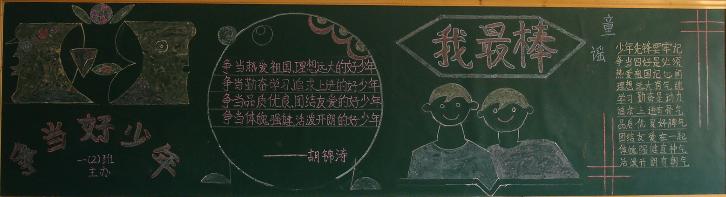 争当好少年
一(2)班
主办
争当热爱祖国、理想远大的好少年
争当勤奋学习、追求上进的好少年
争当品质优良、团结友爱的好少年
争当体魄强健、活泼开朗的好少年
——胡锦涛
我最棒
童谣
少年先锋要牢记
争当四好是必须
热爱祖国记心间
理想远大有气
学习勤奋是动力
追求上进有骨气
品质优良好脾气
团结友爱在一起
体魄强健真神气
活泼开朗有朝气